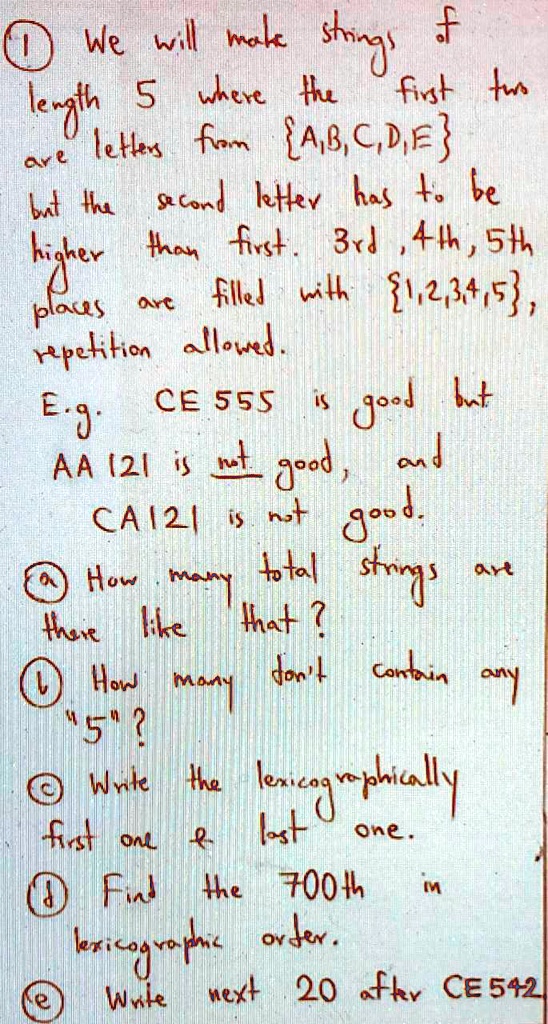 ① We will make strings of
length 5 where the first two
are letters from {A,B,C,D,E}
but the second letter has to be
higher than first. 3rd, 4th, 5th
places are filled with {1,2,3,4,5},
repetition allowed.
E.g. CE 555 is good but
AA 121 is not good, and
CA121 is not good.
ⓐ How many total strings are
there like that?
ⓑ How many don't contain any
"5"?
ⓒ Write the lexicographically
first one & last one.
ⓓ Find the 700th in
lexicographic order.
ⓔ Write next 20 after CE 542